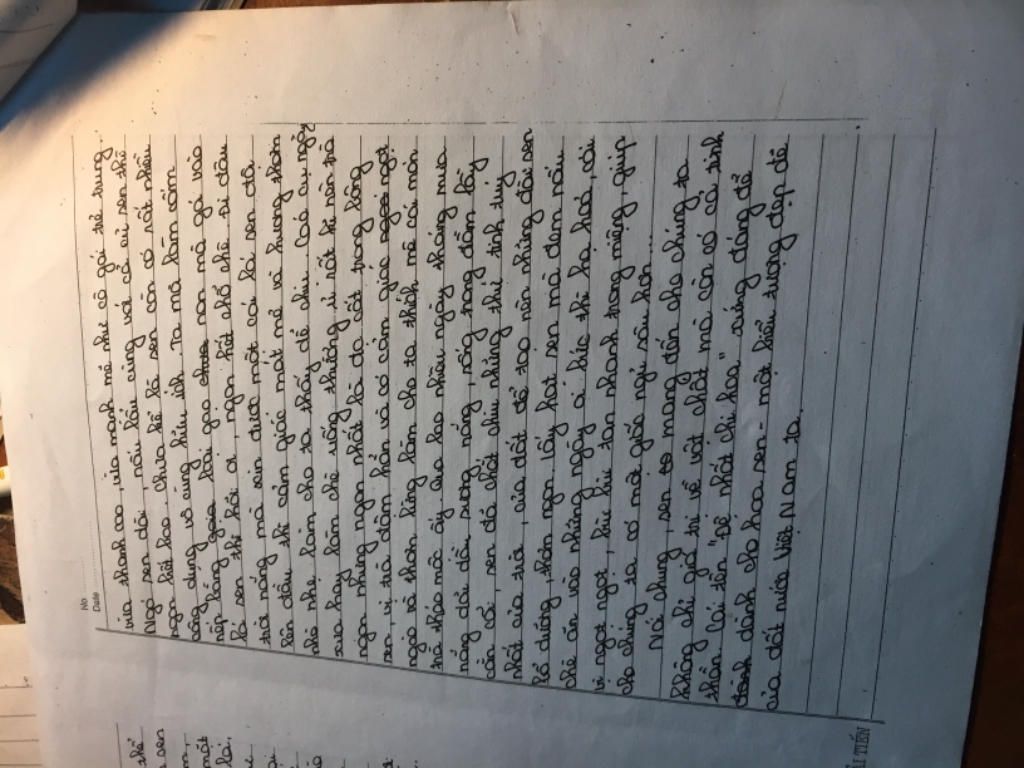 No.
Date
vừa thanh cao, vừa mạnh mẽ như cô gái trẻ trung.
Ngó sen dài, nấu lẩu cùng với cả củ sen thì
ngon hết bao, chưa kể lá sen còn có rất nhiều
công dụng vô cùng hữu ích. Ta mà làm cốm
nếp bằng loài gạo non mà gói vào
lá sen thì hỡi ôi, ngon hết chỗ chê. Đi đâu
trời nóng mà xin được một cái lá sen đội
lên đầu thì cảm giác mát mẻ và hương thơm
nhè nhẹ làm cho ta thấy dễ chịu. Các cụ ngày
xưa hay làm chè uống thường, vì rất kì nên trà
ngon nhưng ngon nhất là do cất trong bông
sen, vị trà đậm hẳn và có cảm giác ngọt
ngào và thơm lừng làm cho ta thích mê cái món
trà thảo mộc ấy. Qua bao nhiêu ngày tháng mưa
nắng dãi dầu sương nắng, trong đầm lầy
cằn cỗi, sen đã chắt chiu những thứ tinh túy
nhất của trời, của đất để tạo nên những đài sen
bổ dưỡng, thơm ngon. Lấy hạt sen mà đem nấu
chè ăn vào những ngày oi bức thì hạ hoả, cái
vị ngọt ngọt, bùi bùi tan nhanh trong miệng, giúp
cho chúng ta có một giấc ngủ sâu hơn...
Nói chung, sen mang đến cho chúng ta
không chỉ giá trị về vật chất mà còn có cả tinh
thần. Cái tên "Đệ nhất chi hoa" xứng đáng để
dành cho hoa sen - một biểu tượng đẹp đẽ
của đất nước Việt Nam ta.